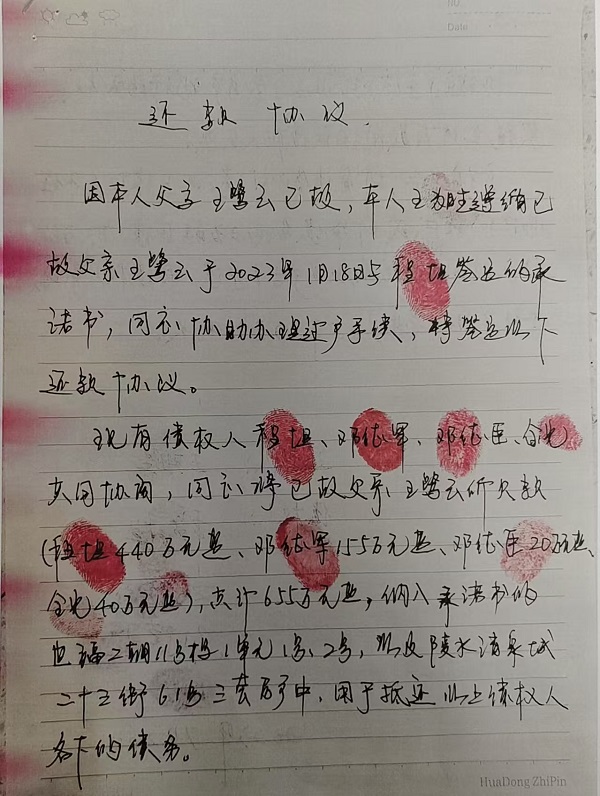 NO
Date
还款协议.
因本人父亲王鹭云已故,本人王为胜遵循已
故父亲王鹭云于2023年1月18日与程坦签定的承
诺书,同意协助办理过户手续,特签定以下
还款协议。
现有债权人程坦、邓征军、邓征臣、
共同协商,同意将已故父亲王鹭云所欠款
(程坦440万元整、邓征军155万元整、邓征臣20万元整、
40万元整),共计655万元整,纳入承诺书的
二期11号楼1单元1号、2号,以及陵水清泉城
二十三街61号三套房子中,用于抵还以上债权人
名下的债务。
HuaDong ZhiPin